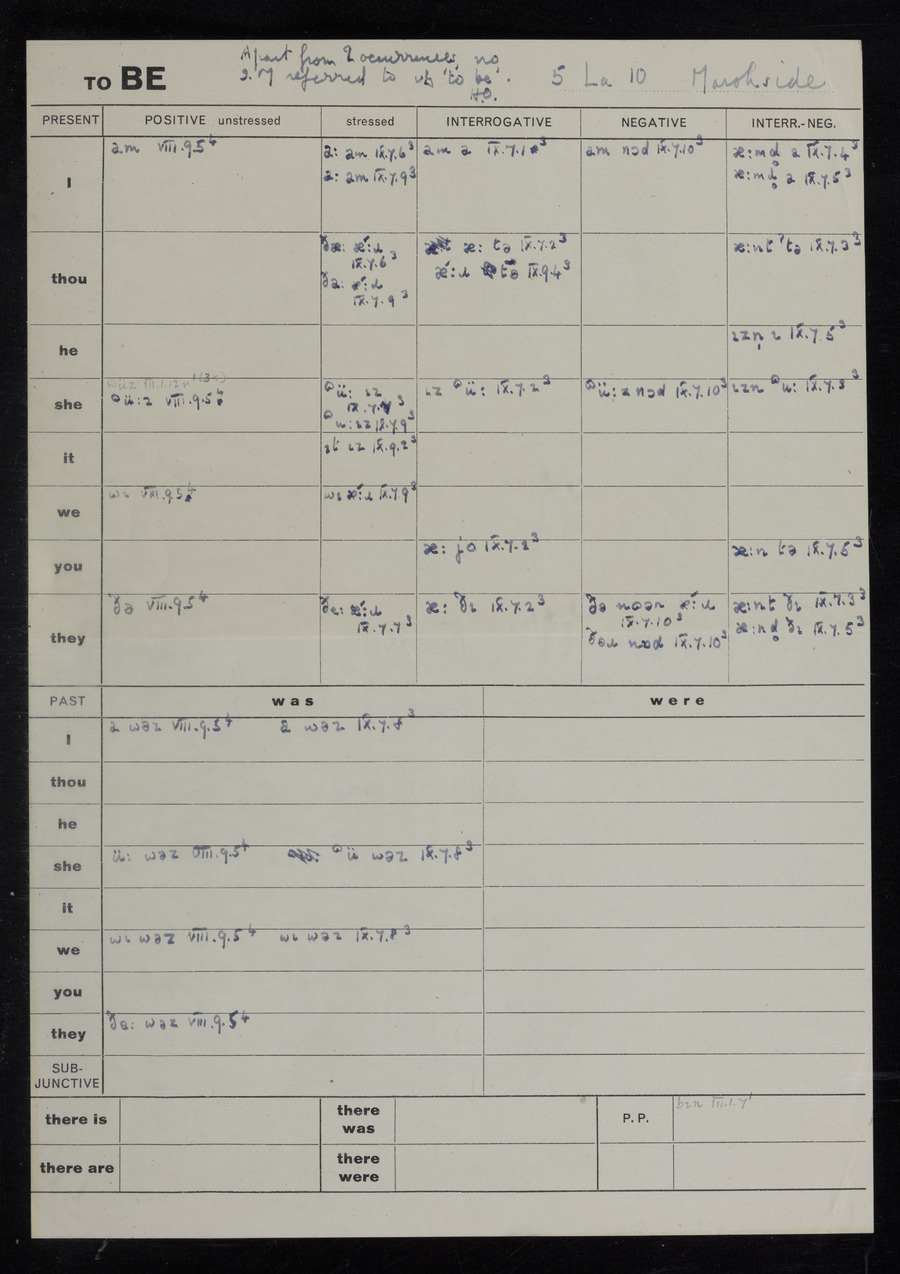 TO BE
Apart from 2 occurrences, no
I.M. referred to vb 'to be'.
H.O.
5 La 10 Marshside
PRESENT POSITIVE unstressed stressed INTERROGATIVE NEGATIVE INTERR.-NEG.
I
am VIII.9.5⁴
a: am IX.7.6³
a: am IX.7.9³
am a IX.7.1³
am nəd IX.7.10³
æ:md̥ a IX.7.4³
æ:md̥ a IX.7.5³
thou
IX.7.6³
IX.7.9³
æ: tə IX.7.2³
tə IX.9.4³
æ:nt tə IX.7.3³
he
ɪzn̩ ɪ IX.7.5³
she
VIII.9.5⁴
ᵊü: ɪz
IX.7.9³
ɪz ᵊü: IX.7.2³
ᵊü:z nəd IX.7.10³
ɪzn ᵊu: IX.7.3³
it
ɪt ɪz IX.9.2³
we
wɪ VIII.9.5⁴
IX.7.9³
you
æ: jo IX.7.2³
æ:n tə IX.7.5³
they
ðə VIII.9.5⁴
IX.7.7³
æ: ðɪ IX.7.2³
IX.7.10³
nəd IX.7.10³
æ:nt ðɪ IX.7.3³
æ:nd̥ ðɪ IX.7.5³
PAST was were
I
a wəz VIII.9.5⁴ a wəz IX.7.8³
thou
he
she
ü: wəz VIII.9.5⁴ ᵊü wəz IX.7.8³
it
we
wɪ wəz VIII.9.5⁴ wɪ wəz IX.7.8³
you
they
ðe: wəz VIII.9.5⁴
SUB-
JUNCTIVE
there is
there
was
P.P.
bɪn III.1.7¹
there are
there
were